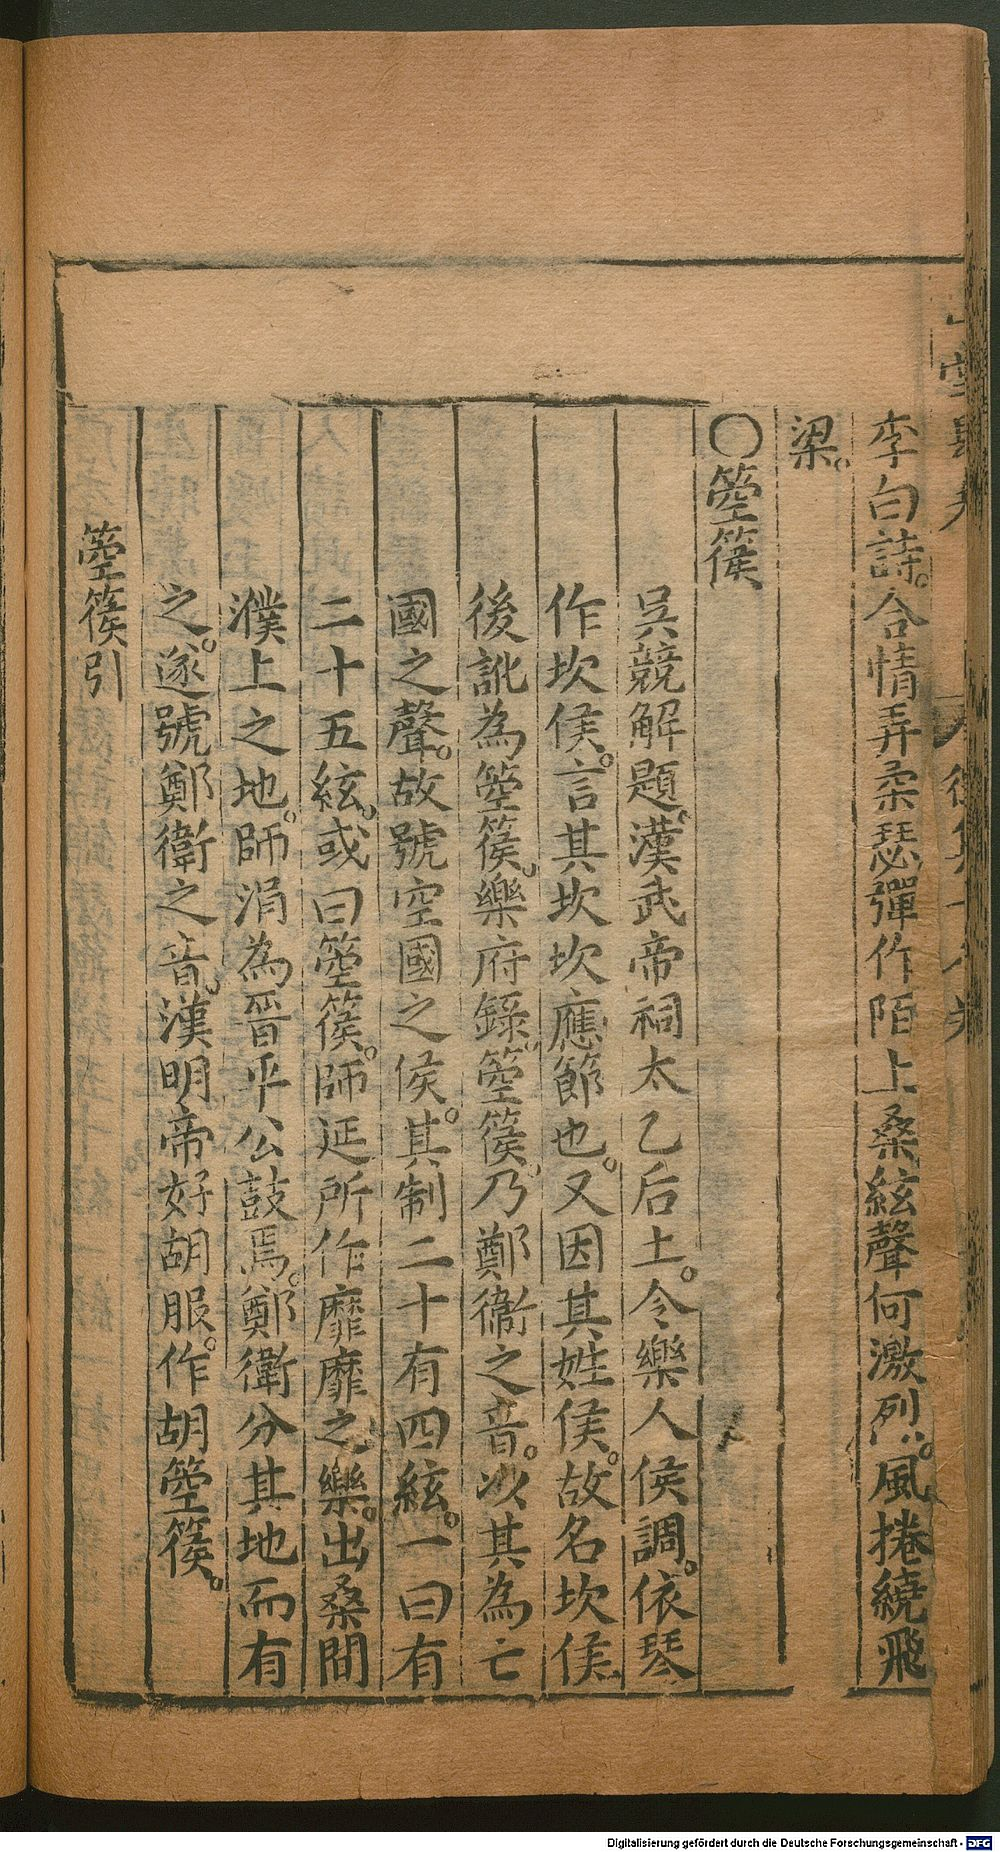 李白詩。含情弄柔瑟彈作陌上桑絃聲何激烈。風捲繞飛
梁。
〇箜篌
吳競解題。漢武帝祠太乙后土。令樂人侯調。依琴
作坎侯。言其坎坎應節也。又因其姓侯。故名坎侯
後訛為箜篌。樂府錄。箜篌。乃鄭衞之音。以其為亡
國之聲。故號空國之侯。其制二十有四絃。一曰有
二十五絃。或曰箜篌。師延所作靡靡之樂。出桑間
濮上之地。師涓為晉平公鼓焉。鄭衛分其地而有
之。遂號鄭衛之音。漢明帝好胡服。作胡箜篌。
箜篌引
Digitalisierung gefördert durch die Deutsche Forschungsgemeinschaft - DFG